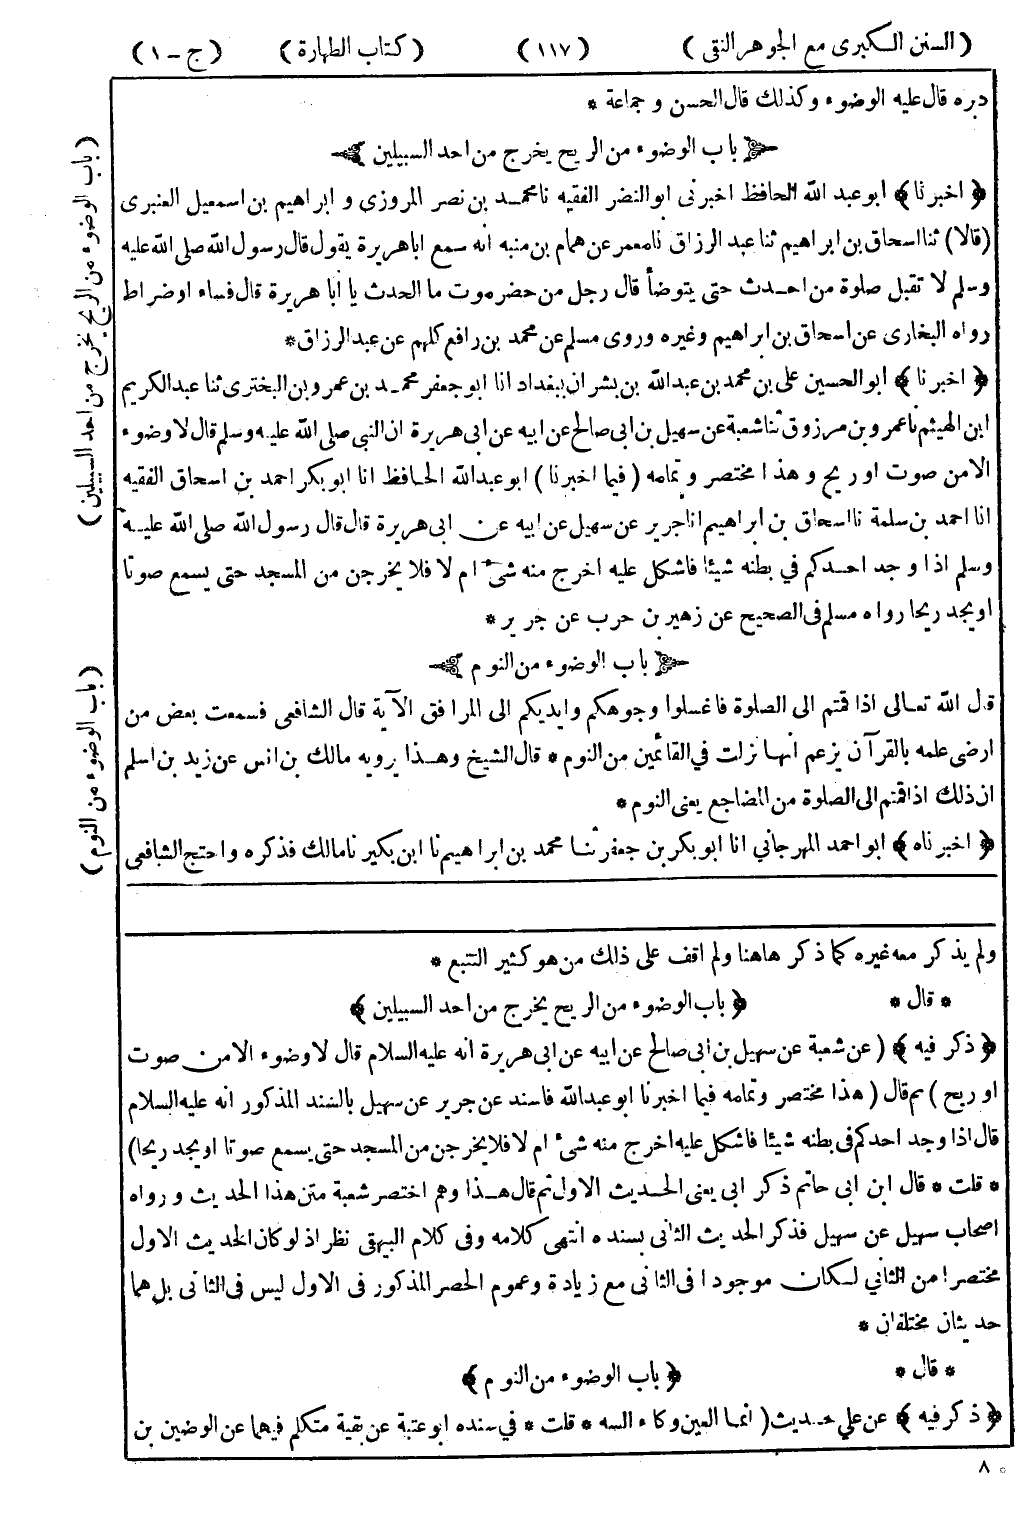 (السنن الكبرى مع الجوهر النقى) (١١٧) (كتاب الطهارة) (ج - ١)
دبره قال عليه الوضوء وكذلك قال الحسن و جماعة *
باب الوضوء من الريح يخرج من احد السبيلين
﴿ اخبرنا ﴾ ابو عبد الله الحافظ اخبرنى ابو النضر الفقيه نا محمد بن نصر المروزى و ابراهيم بن اسمعيل العنبرى
(قالا) ثنا اسحاق بن ابراهيم ثنا عبد الرزاق نا معمر عن همام بن منبه انه سمع اباهريرة يقول قال رسول الله صلى الله عليه
وسلم لا تقبل صلوة من احدث حتى يتوضأ قال رجل من حضرموت ما الحدث يا ابا هريرة قال فساء او ضراط
رواه البخارى عن اسحاق بن ابراهيم وغيره وروى مسلم عن محمد بن رافع كلهم عن عبد الرزاق *
﴿ اخبر نا ﴾ ابو الحسين على بن محمد بن عبدالله بن بشران ببغداد انا ابو جعفر محمد بن عمرو بن البخترى ثنا عبد الكريم
ابن الهيثم نا عمرو بن مرزوق ثنا شعبة عن سهيل بن ابى صالح عن ابيه عن ابى هريرة ان النبى صلى الله عليه وسلم قال لا وضوء
الا من صوت او ريح و هذا مختصر و تمامه ( فيما اخبرنا ) ابو عبدالله الحافظ انا ابو بكر احمد بن اسحاق الفقيه
انا احمد بن سلمة نا اسحاق بن ابراهيم انا جرير عن سهيل عن ابيه عن ابى هريرة قال قال رسول الله صلى الله عليه
وسلم اذا وجد احدكم في بطنه شيئا فاشكل عليه اخرج منه شئ ام لا فلا يخرجن من المسجد حتى يسمع صوتا
او يجد ريحا رواه مسلم فى الصحيح عن زهير بن حرب عن جرير *
باب الوضوء من النوم
قال الله تعالى اذا قمتم الى الصلوة فاغسلوا وجوهكم وايديكم الى المرافق الآية قال الشافعى فسمعت بعض من
ارضى علمه بالقرآن يزعم انها نزلت في القائمين من النوم * قال الشيخ وهذا يرويه مالك بن انس عن زيد بن اسلم
ان ذلك اذا قمتم الى الصلوة من المضاجع يعنى النوم *
﴿ اخبرناه ﴾ ابو احمد المهرجاني انا ابو بكر بن جعفر ثنا محمد بن ابراهيم نا ابن بكير نا مالك فذكره واحتج الشافعى
(باب الوضوء من الريح يخرج من احد السبيلين)
(باب الوضوء من النوم)
ولم يذكر معه غيره كما ذكر هاهنا ولم اقف على ذلك من هو كثير التتبع *
* قال * ﴿ باب الوضوء من الريح يخرج من احد السبيلين ﴾
﴿ ذكر فيه ﴾ (عن شعبة عن سهيل بن ابى صالح عن ابيه عن ابى هريرة انه عليه السلام قال لا وضوء الا من صوت
او ريح ) ثم قال ( هذا مختصر وتمامه فيما اخبرنا ابو عبدالله فاسند عن جرير عن سهيل بالسند المذكور انه عليه السلام
قال اذا وجد احدكم فى بطنه شيئا فاشكل عليه اخرج منه شئ ام لا فلا يخرجن من المسجد حتى يسمع صوتا او يجد ريحا)
* قلت * قال ابن ابى حاتم ذكر ابى يعنى الحديث الاول ثم قال هذا وهم اختصر شعبة متن هذا الحديث و رواه
اصحاب سهيل عن سهيل فذكر الحديث الثانى بسنده انتهى كلامه وفى كلام البيهقى نظر اذ لو كان الحديث الاول
مختصرا من الثاني لكان موجودا فى الثانى مع زيادة وعموم الحصر المذكور فى الاول ليس فى الثانى بل هما
حديثان مختلفان *
* قال * ﴿ باب الوضوء من النوم ﴾
﴿ ذكر فيه ﴾ عن علي حديث ( انما العين وكاء السه * قلت * في سنده ابو عتبة عن بقية متكلم فيهما عن الوضين بن
٨